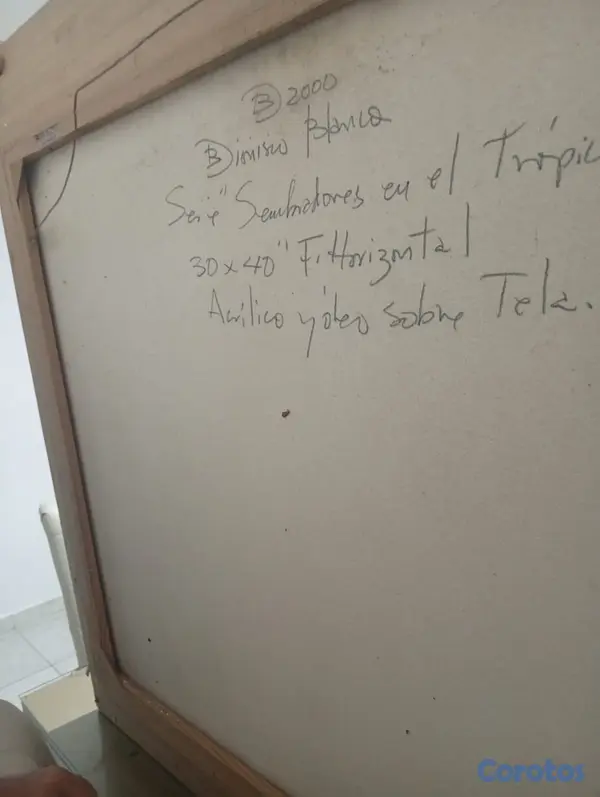 B 2000
Dionisio Blanco
Serie "Sembradores en el Trópic
30x40" F. Horizontal
Acrílico y óleo sobre Tela.
Corotos